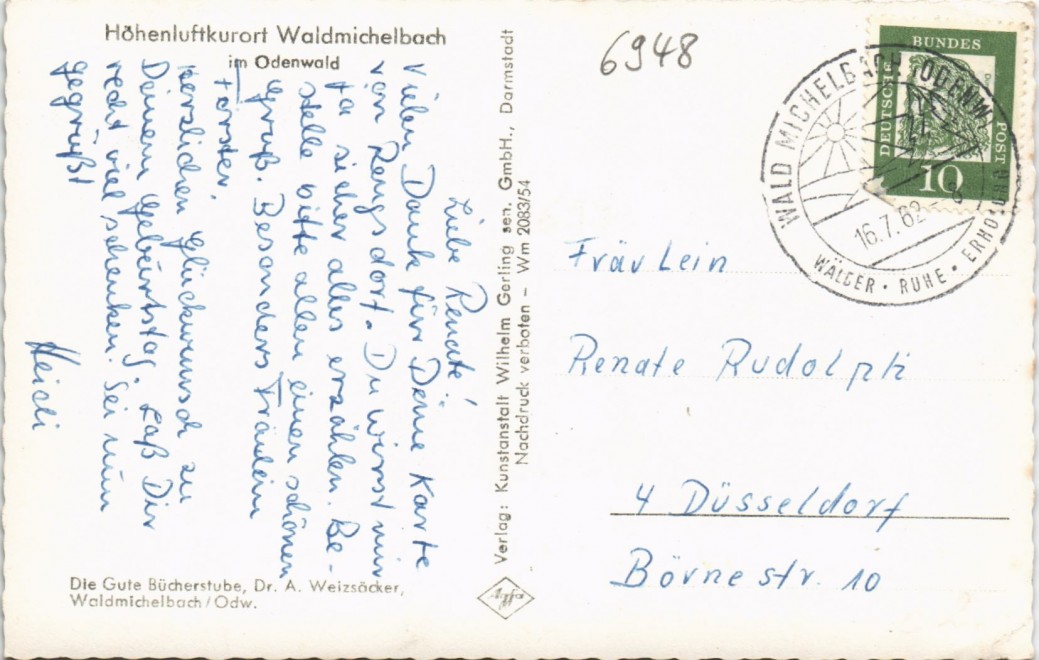 Höhenluftkurort Waldmichelbach
im Odenwald
6948
Liebe Renate!
Vielen Dank für Deine Karte
von Rengsdorf. Du wirst mir
ja sicher alles erzählen. Be-
stelle bitte allen einen schönen
Gruß. Besonders Fräulein
Förster.
Herzlichen Glückwunsch zu
Deinem Geburtstag. Laß Dir
recht viel schenken. Sei nun
gegrüßt
Heidi
Die Gute Bücherstube, Dr. A. Weizsäcker,
Waldmichelbach/Odw.
Verlag: Kunstanstalt Wilhelm Gerling sen. GmbH., Darmstadt
Nachdruck verboten – Wm 2083/54
Agfa
DEUTSCHE BUNDES POST
10
WALD MICHELBACH (ODENW
16.7.62 - 8
WÄLDER · RUHE · ERHOLUNG
Fräulein
Renate Rudolph
4 Düsseldorf
Börnestr. 10